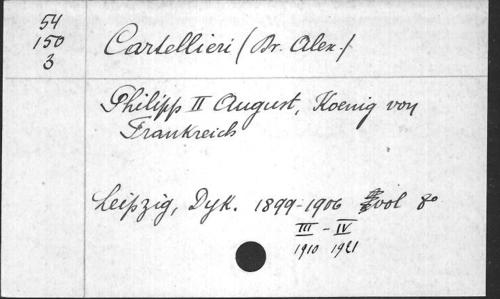 54
150
3
Cartellieri (Dr. Alex.)
Philipp II August, Koenig von
Frankreich
Leipzig, Dyk. 1899-1906 vol 8o
III - IV
1910 1921